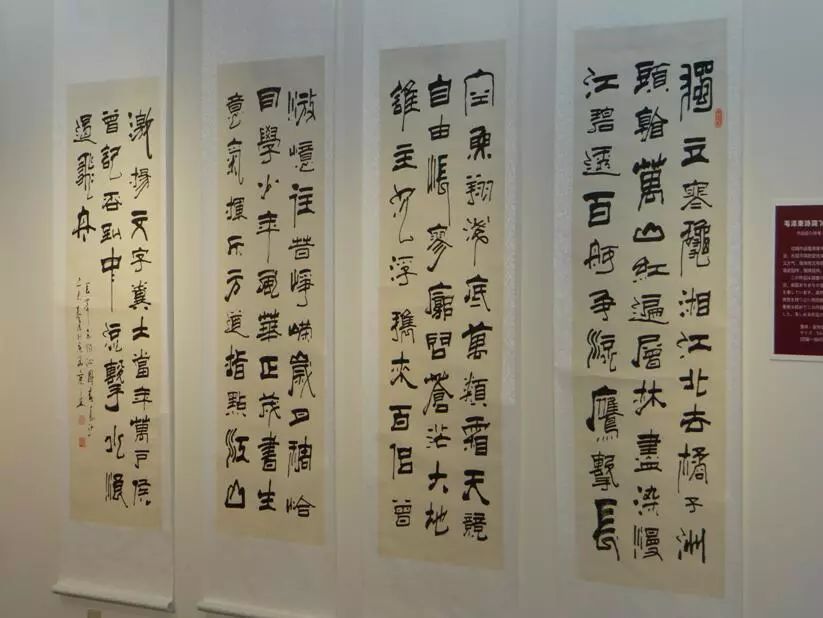 獨立寒龝湘江北去橘子洲
頭看萬山紅遍層林盡染漫
江碧透百舸爭流鷹擊長
空魚翔淺底萬類霜天競
自由悵寥廓問蒼茫大地
誰主沉浮攜來百侶曾
游憶往昔崢嶸歲月稠恰
同學少年風華正茂書生
意氣揮斥方遒指點江山
激揚文字糞土當年萬戶侯
曾記否到中流擊水浪
遏飛舟